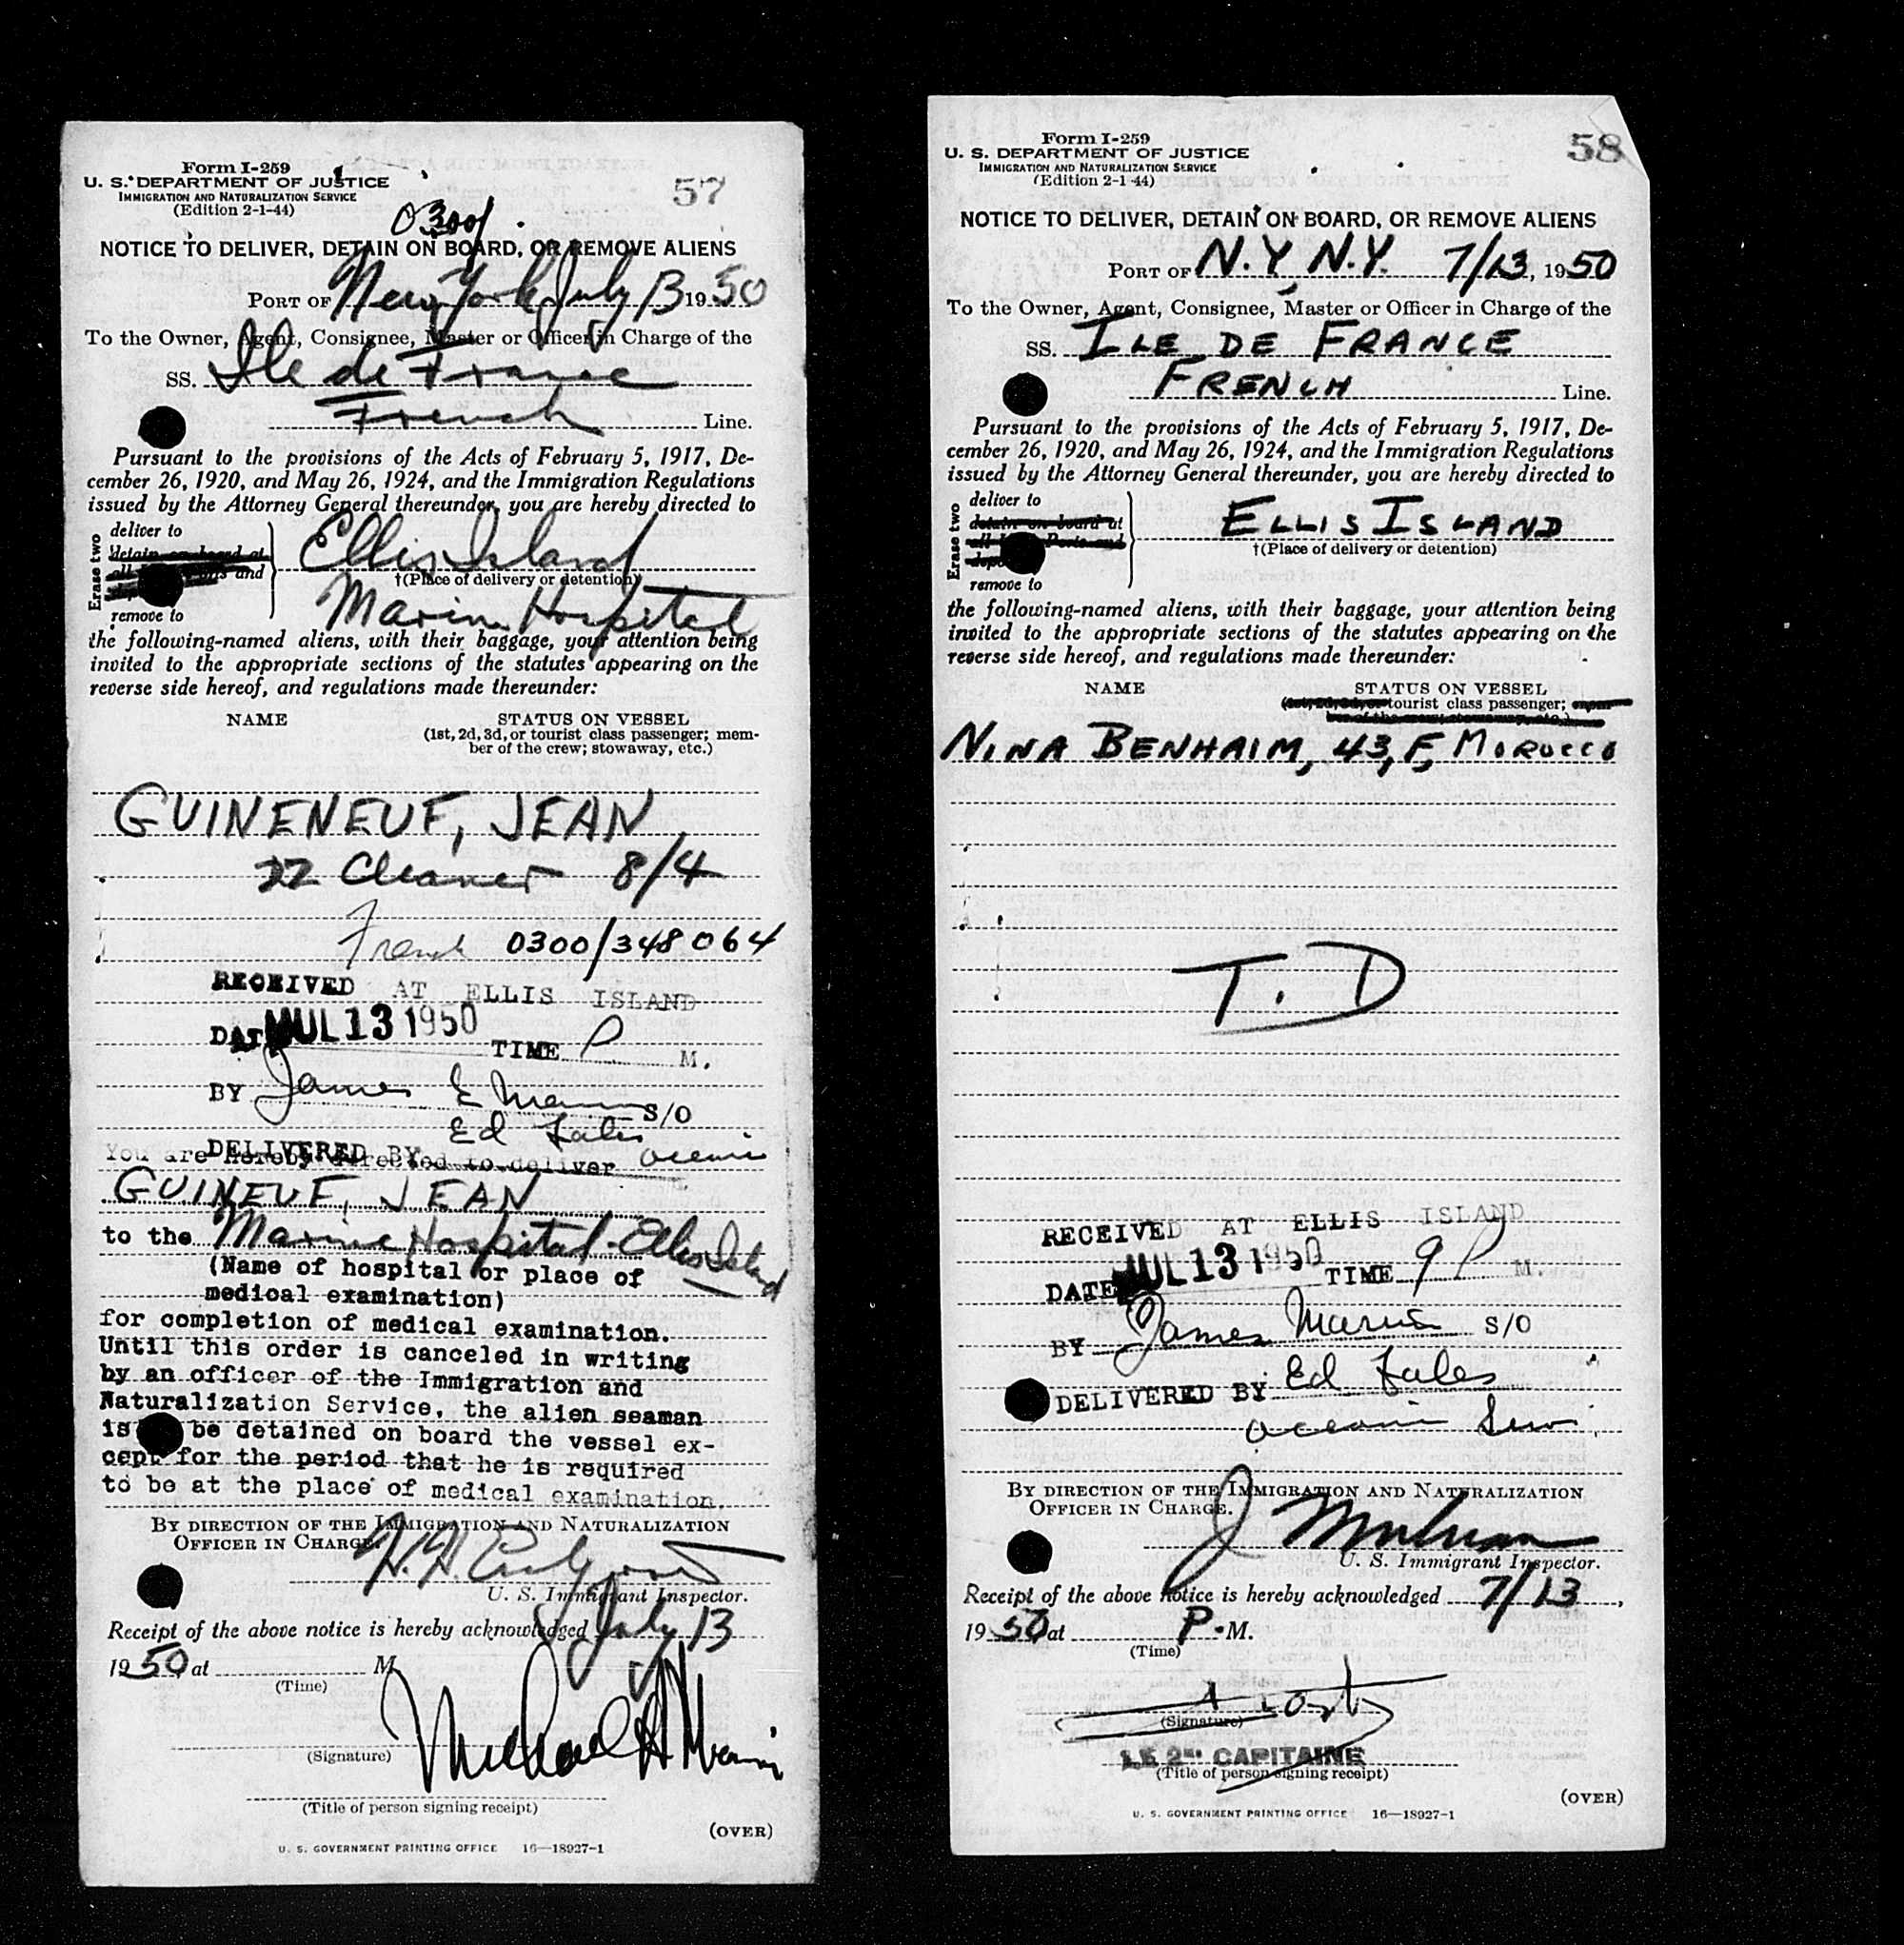 Form I-259
U. S. DEPARTMENT OF JUSTICE
IMMIGRATION AND NATURALIZATION SERVICE
(Edition 2-1-44)
57
0300/
NOTICE TO DELIVER, DETAIN ON BOARD, OR REMOVE ALIENS
PORT OF New York July 13 1950
To the Owner, Agent, Consignee, Master or Officer in Charge of the
SS. Ile de France
French Line.
Pursuant to the provisions of the Acts of February 5, 1917, De-
cember 26, 1920, and May 26, 1924, and the Immigration Regulations
issued by the Attorney General thereunder, you are hereby directed to
Erase two
deliver to
detain on board at
remove to
Ellis Island
†(Place of delivery or detention)
Marine Hospital
the following-named aliens, with their baggage, your attention being
invited to the appropriate sections of the statutes appearing on the
reverse side hereof, and regulations made thereunder:
NAME STATUS ON VESSEL
(1st, 2d, 3d, or tourist class passenger; mem-
ber of the crew; stowaway, etc.)
GUINENEUF, JEAN
22 Cleaner 8/4
French 0300/348064
RECEIVED AT ELLIS ISLAND
DATE JUL 13 1950 TIME P M.
BY James E S/O
Ed Fales
DELIVERED BY
You are hereby directed to deliver
GUINEUF, JEAN
to the Marine Hospital - Ellis Island
(Name of hospital or place of
medical examination)
for completion of medical examination.
Until this order is canceled in writing
by an officer of the Immigration and
Naturalization Service, the alien seaman
is be detained on board the vessel ex-
cept for the period that he is required
to be at the place of medical examination.
BY DIRECTION OF THE IMMIGRATION AND NATURALIZATION
OFFICER IN CHARGE.
U. S. Immigrant Inspector.
Receipt of the above notice is hereby acknowledged July 13
1950, at M.
(Time)
(Signature) Michael
(Title of person signing receipt)
(OVER)
U. S. GOVERNMENT PRINTING OFFICE 16—18927-1
Form I-259
U. S. DEPARTMENT OF JUSTICE
IMMIGRATION AND NATURALIZATION SERVICE
(Edition 2-1-44)
58
NOTICE TO DELIVER, DETAIN ON BOARD, OR REMOVE ALIENS
PORT OF N.Y, N.Y. 7/13, 1950
To the Owner, Agent, Consignee, Master or Officer in Charge of the
SS. ILE DE FRANCE
FRENCH Line.
Pursuant to the provisions of the Acts of February 5, 1917, De-
cember 26, 1920, and May 26, 1924, and the Immigration Regulations
issued by the Attorney General thereunder, you are hereby directed to
Erase two
deliver to
detain on board at
remove to
ELLIS ISLAND
†(Place of delivery or detention)
the following-named aliens, with their baggage, your attention being
invited to the appropriate sections of the statutes appearing on the
reverse side hereof, and regulations made thereunder:
NAME STATUS ON VESSEL
tourist class passenger;
NINA BENHAIM, 43, F, MOROCCO
T. D
RECEIVED AT ELLIS ISLAND
DATE JUL 13 1950 TIME 9 P M.
BY James S/O
DELIVERED BY Ed Fales
BY DIRECTION OF THE IMMIGRATION AND NATURALIZATION
OFFICER IN CHARGE.
U. S. Immigrant Inspector.
Receipt of the above notice is hereby acknowledged 7/13,
1950 at P. M.
(Time)
(Signature)
LE 2nd CAPITAINE
(Title of person signing receipt)
(OVER)
U. S. GOVERNMENT PRINTING OFFICE 16—18927-1